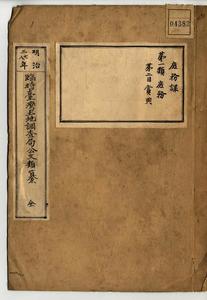 04382
庶務課
第一類 庶務
第二目 賞與
明治
三六年
臨時臺灣土地調查局公文類纂 全